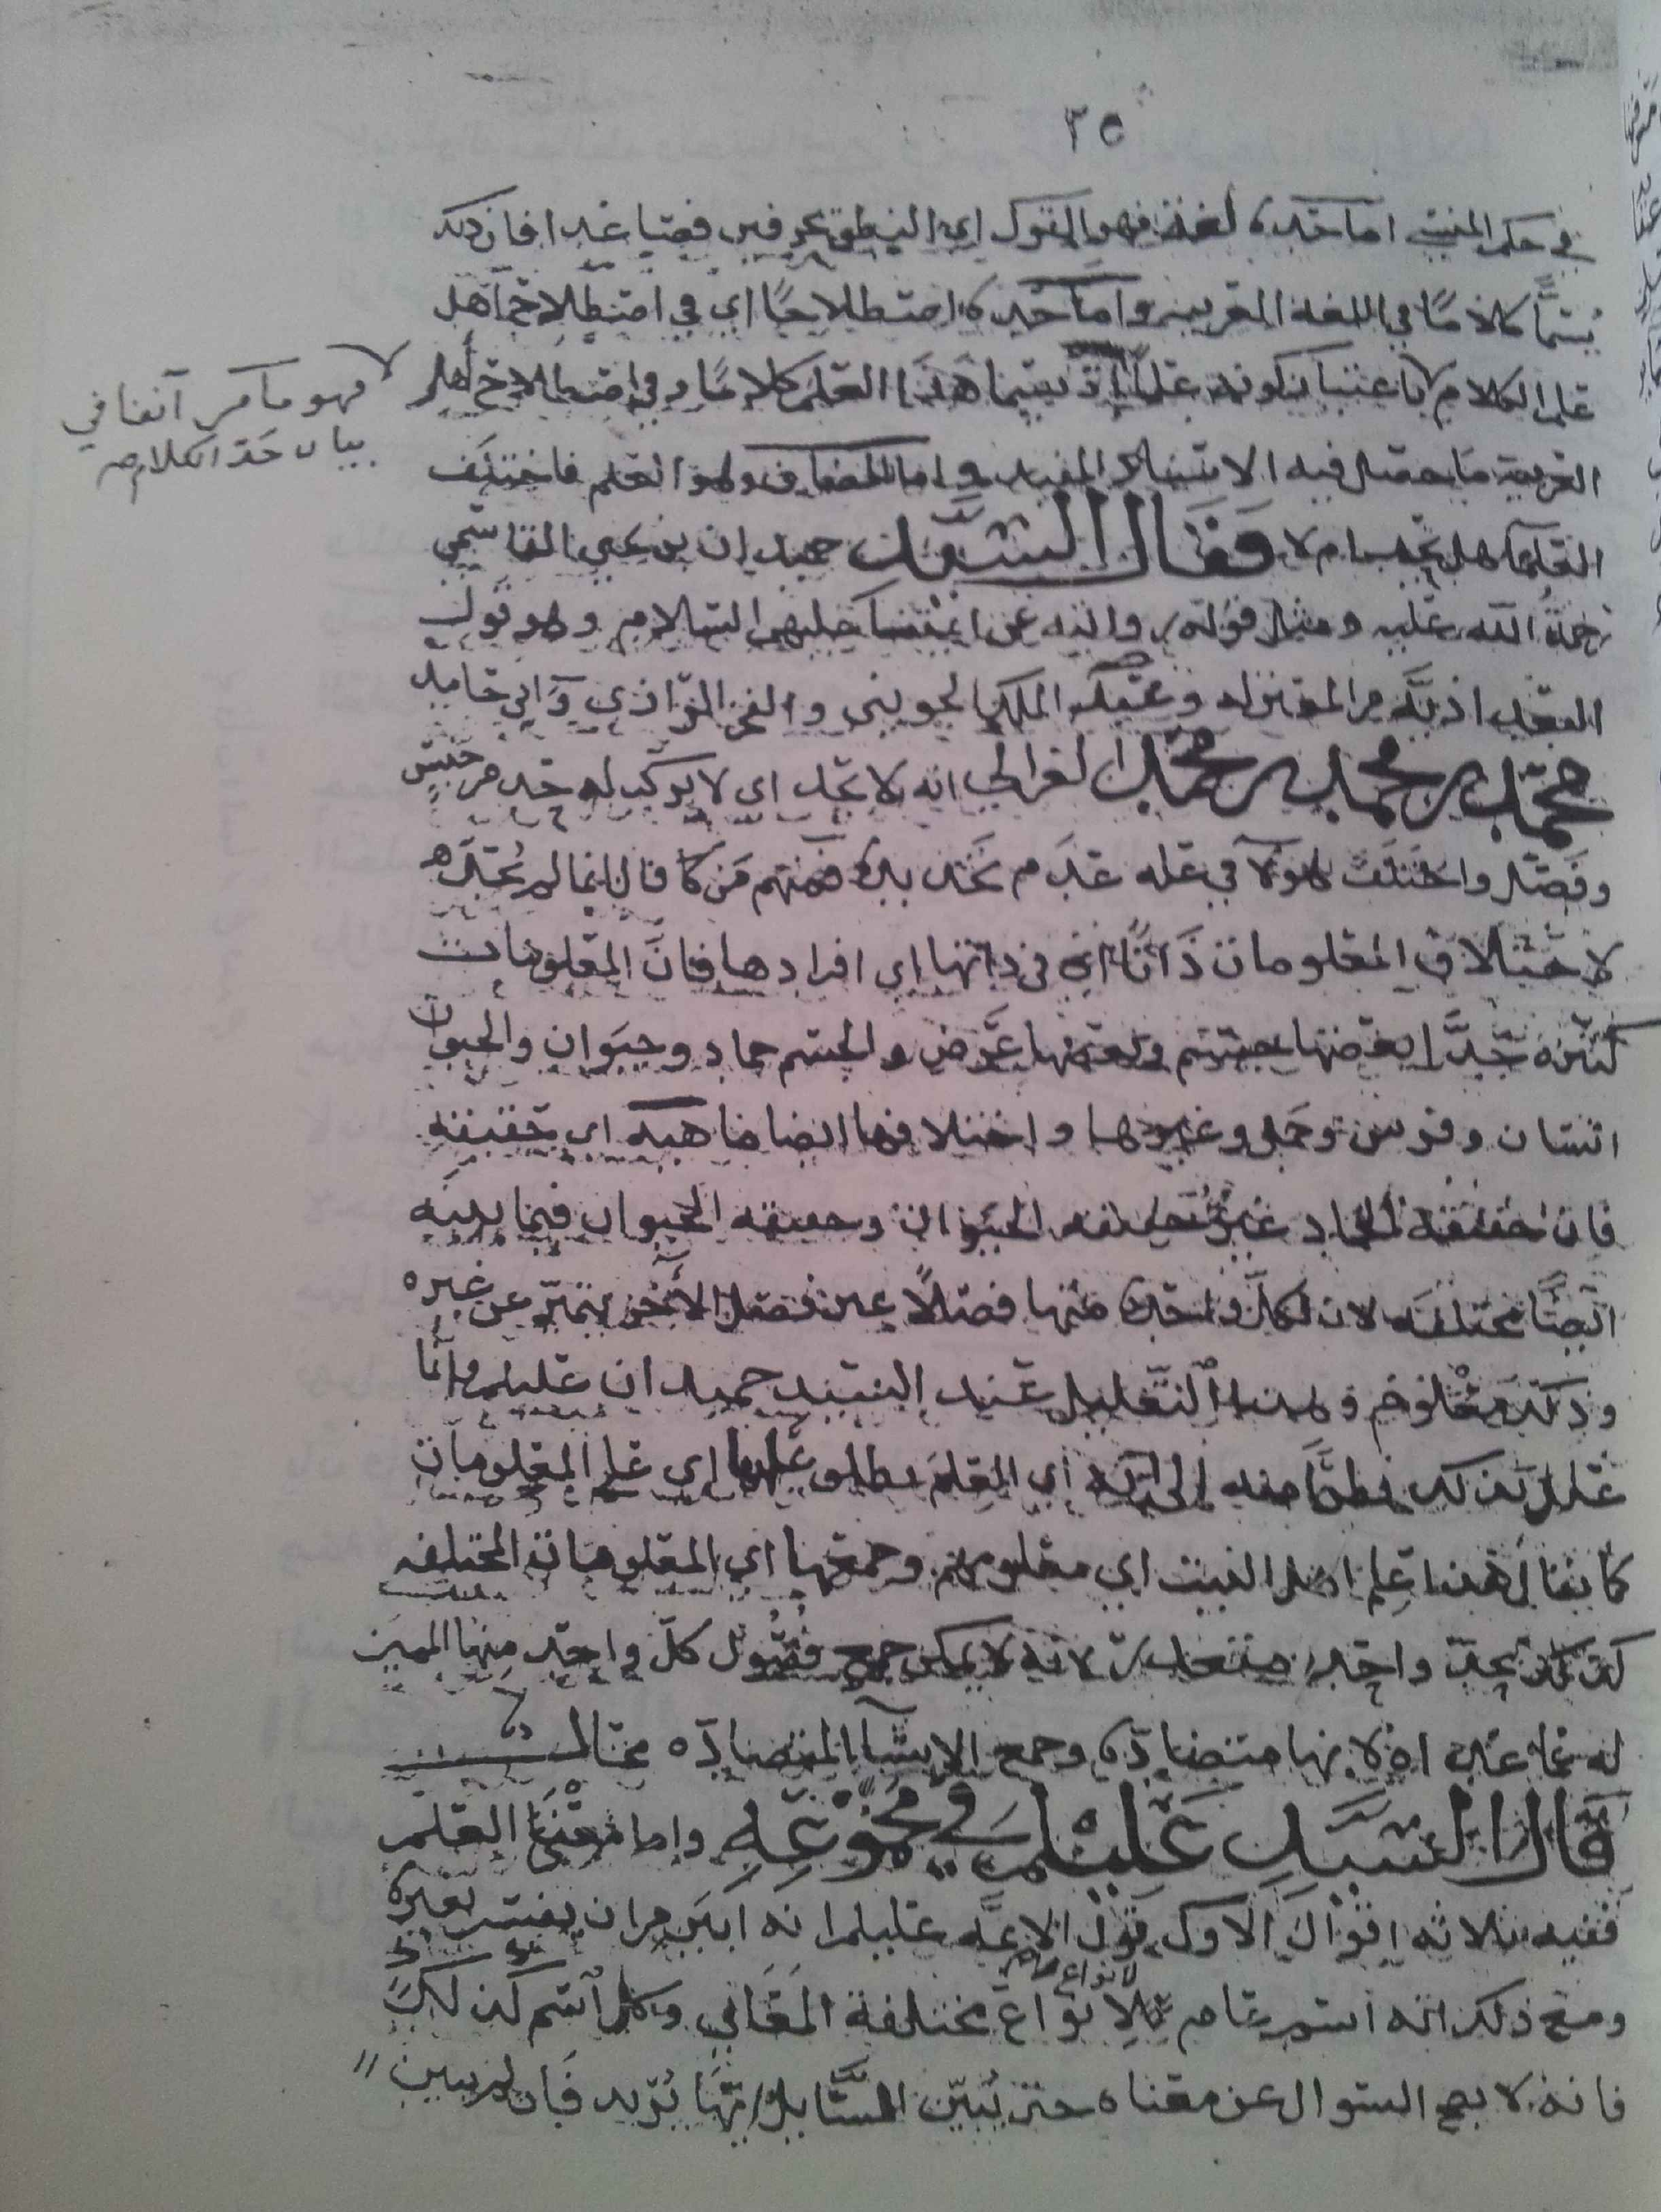 ٣٥
في حكم المنسي اما حده لغة فهو القول اي النطق بحرفين فصاعدا فان ذلك
يسمَّا كلامًا في اللغة العربيه واما حده اصطلاحًا اي في اصطلاح اهل
علم الكلام باعتبار كونه علمًا اذ يسما هذا العلم كلامًا وفي اصطلاح أهل
العربية ما حصل فيه الاسناد المفيد واما المضاف وهو العلم فاختلف
فهو ما مر آنفا في
بيان حد الكلام صح
العلما هل يحد ام لا فقال السيد حميدان بن يحيى القاسمي
رحمة الله عليه ومثل قوله روايته عن ائمتنا عليهم السلام وهو قول
البغداذيَّه من المعتزله وعبد الملك الجويني والفخر الرّازي وأبي حامد
محمد بن محمد بن محمد الغزالي انه لا يحد اي لا يركب له حد من جنس
وفصل واختلف هولآ في عله عدم تحديده فمنهم من قال انما لم يُحد
لاختلاف المعلومات ذاتًا اي في ذاتها اي افرادها فانَّ المعلومات
كثيره جدًّا بعضها جسم وبعضها عرض والجسم جماد وحيوان والحيوان
انسان وفرس وجمل وغيرها واختلافها ايضا ماهيه اي حقيقه
فان حقيقة الجماد غير حقيقه الحيوان وحقيقه الحيوان فيما بينه
ايضًا مختلفه لان لكل واحد منها فصلًا غير فصل الآخر يتميز عن غيره
وذلك معلوم وهذا التعليل عند السيد حميدان عليلم وانما
علل بذلك نظرًا منه الى انه اي العلم يطلق عليها اي على المعلومات
كما يقال هذا علم اهل البيت اي معلومهم وجمعها اي المعلومات المختلفه
كذلك بحد واحد متعذر لانه لا يمكن جمع فصول كل واحد منها المميز
له عما عداه لانها متضادّه وجمع الاشيآ المتضادّه محال
قال السيد عليلم في مجموعه واما معنى العلم
ففيه ثلاثه اقوال الاول قول الائمَّه عليلم انه ابين من ان يفسر بغيره
ومع ذلك انه اسم عام لانواع مختلفة المعاني وكل اسم كذلك
لانواع
فانه لا يصح السوال عن معناه حتى يُبين السَّايل ايها يُريد فان لم يبين